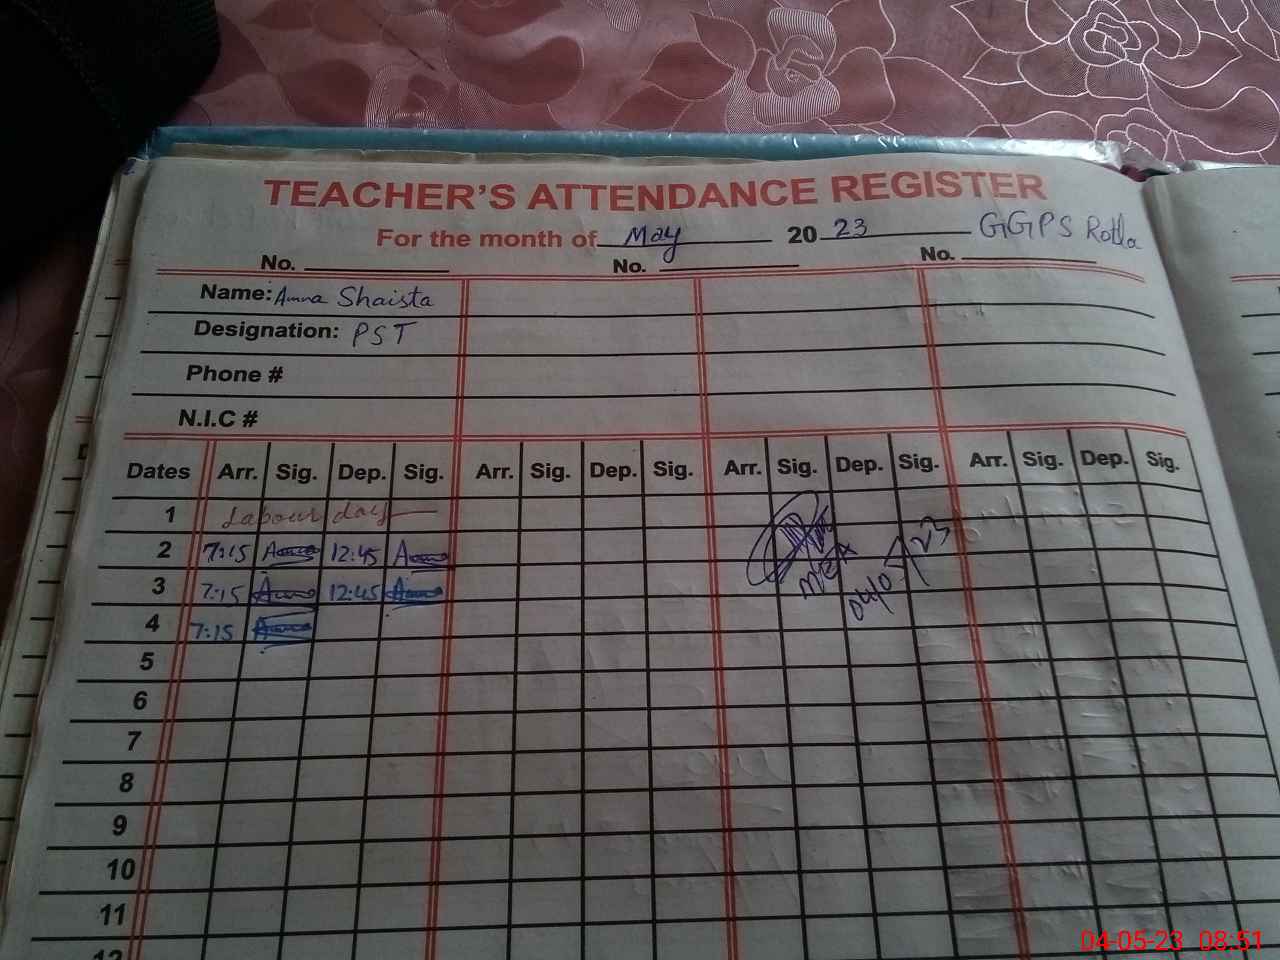 TEACHER'S ATTENDANCE REGISTER
For the month of May 2023 GGPS Rotla
No. No. No.
Name: Amna Shaista
Designation: PST
Phone #
N.I.C #
Dates Arr. Sig. Dep. Sig. Arr. Sig. Dep. Sig. Arr. Sig. Dep. Sig. Arr. Sig. Dep. Sig.
1 Labour day
2 7:15 Amna 12:45 Amna
3 7:15 Amna 12:45 Amna
4 7:15 Amna
MEA
04/05/23
5
6
7
8
9
10
11
12
04-05-23 08:51